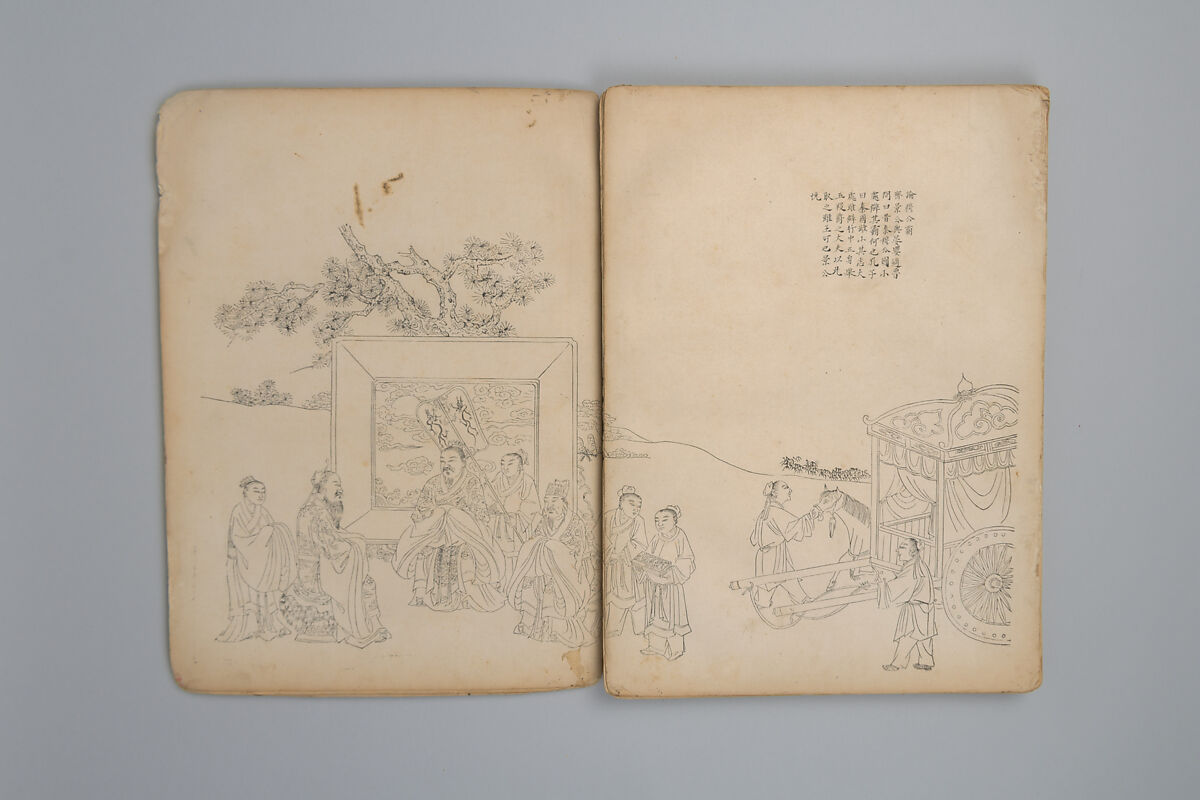 論穆公霸
齊景公與晏嬰適魯
問曰昔秦穆公國小
處辟其霸何也孔子
曰秦國雖小其志大
處雖辟行中正身舉
五羖爵之大夫以此
取之雖王可也景公
悅